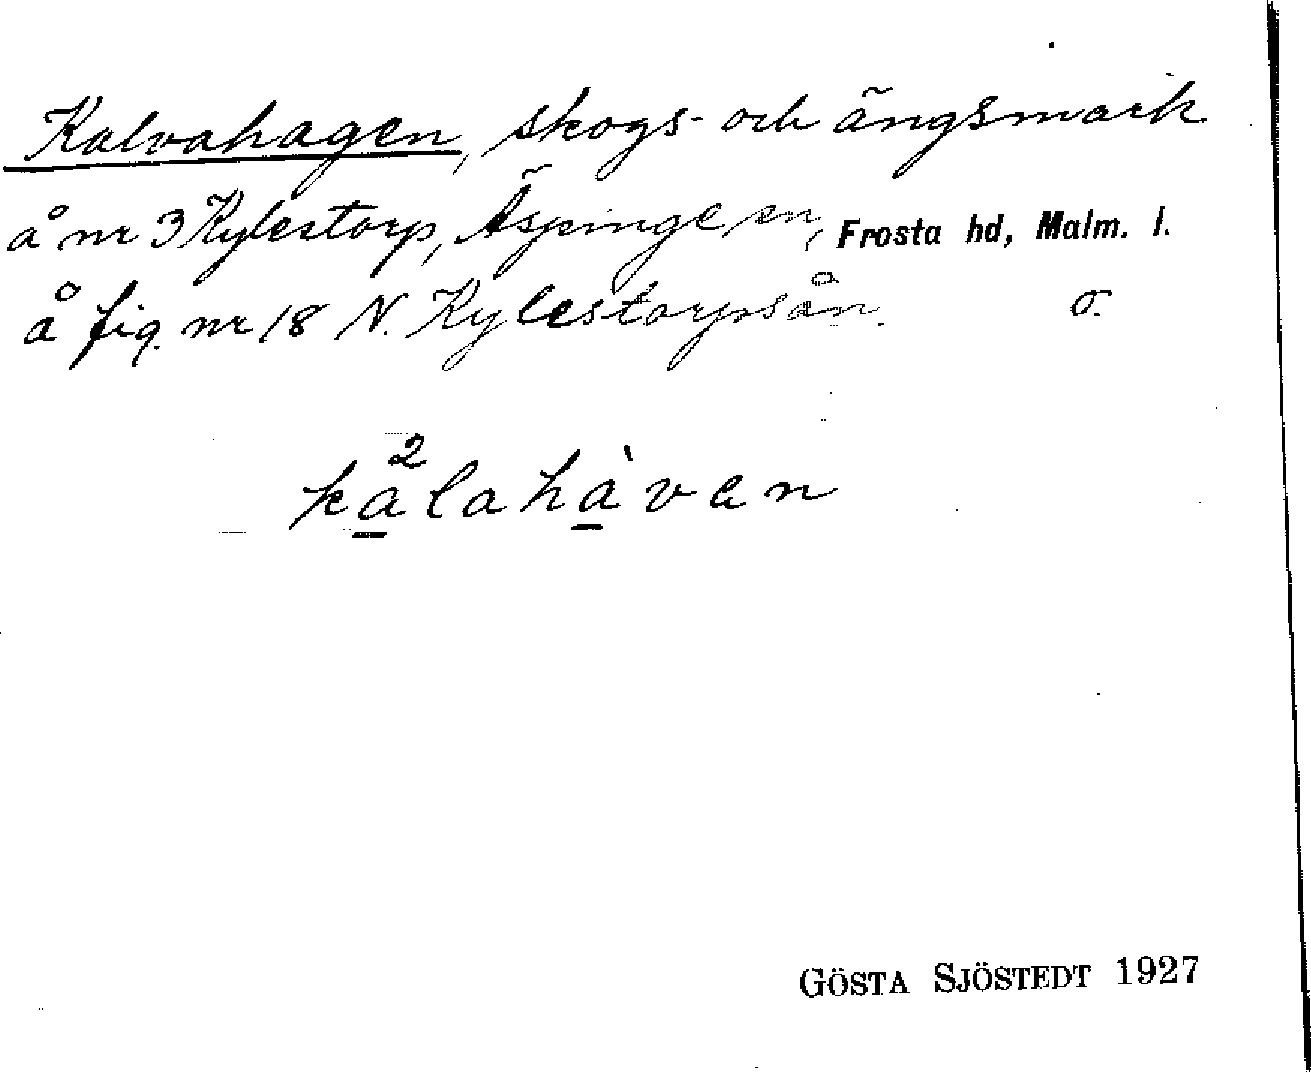 Kalvahagen, skogs- och ängsmark
å nr 3 Kylestorp, Äspinge sn, Frosta hd, Malm. l.
å fig. nr 18 N. Kylestorpsån. σ.
ka̲²lahà̲ven
GÖSTA SJÖSTEDT 1927